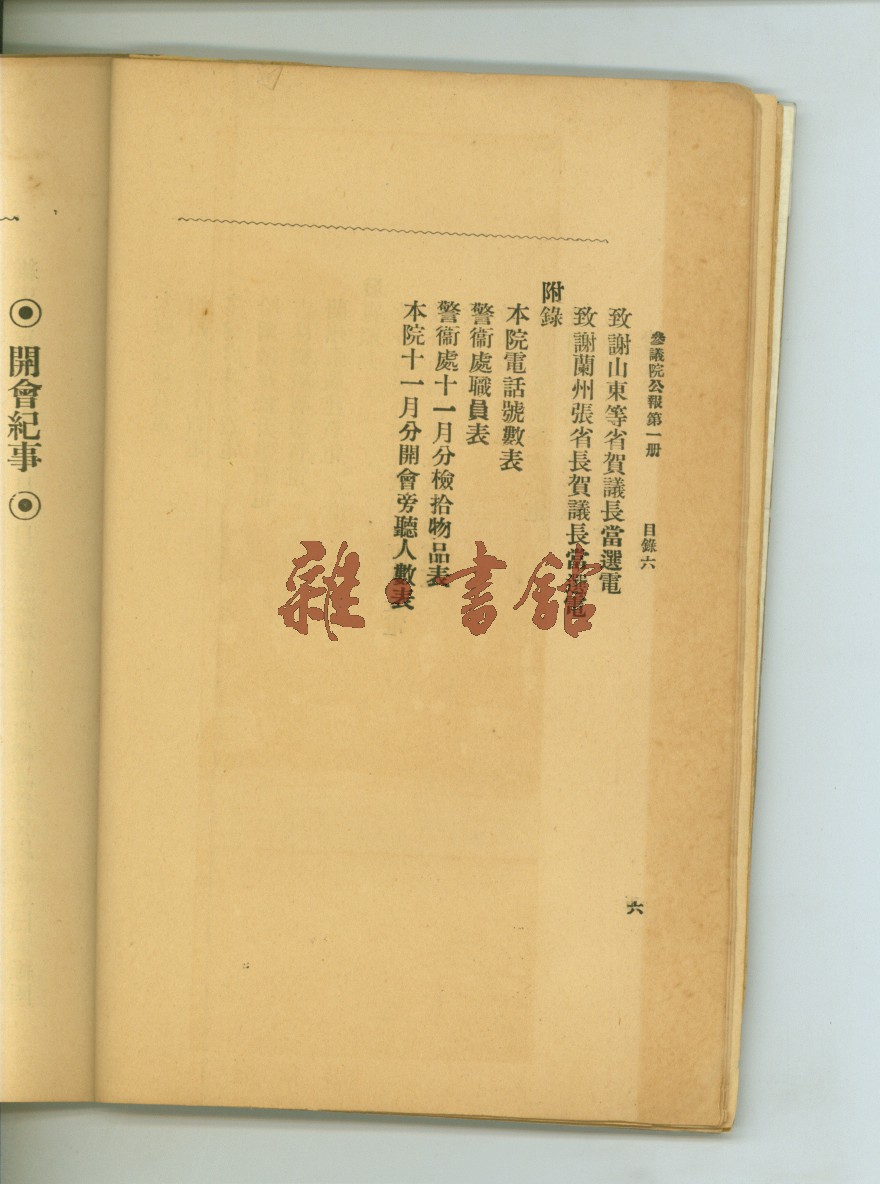 參議院公報第一册　目錄六　六
致謝山東等省賀議長當選電
致謝蘭州張省長賀議長當選電
附錄
本院電話號數表
警衞處職員表
警衞處十一月分檢拾物品表
本院十一月分開會旁聽人數表
◉開會紀事◉
雜·書館